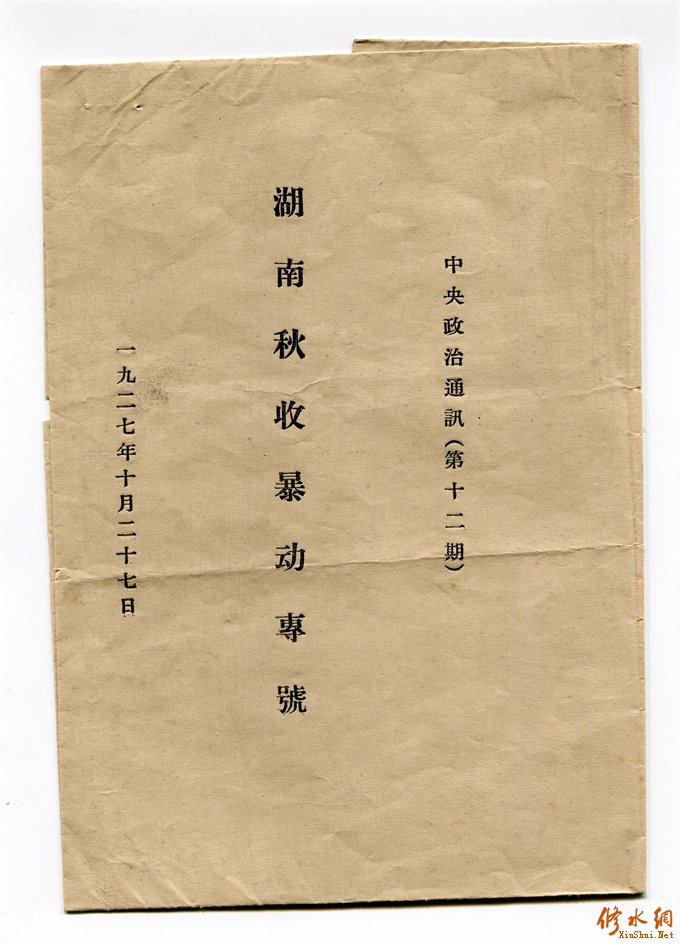 中央政治通訊(第十二期)
湖南秋收暴动專號
一九二七年十月二十七日
修水網
XiuShui.Net